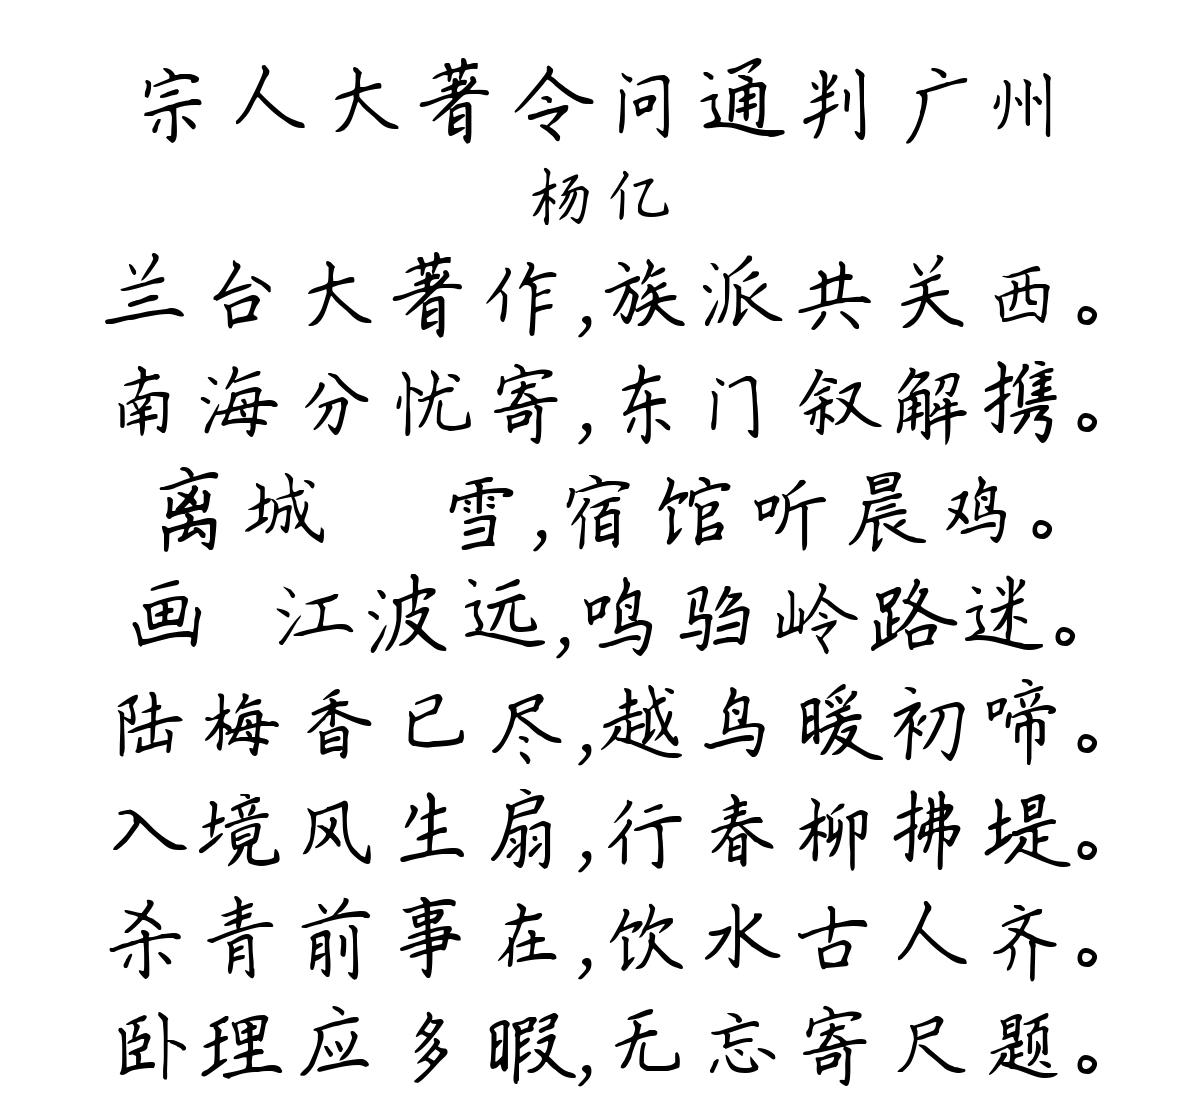 宗人大著令问通判广州
杨亿
兰台大著作,族派共关西。
南海分忧寄,东门叙解携。
离城 雪,宿馆听晨鸡。
画 江波远,鸣驺岭路迷。
陆梅香已尽,越鸟暖初啼。
入境风生扇,行春柳拂堤。
杀青前事在,饮水古人齐。
卧理应多暇,无忘寄尺题。